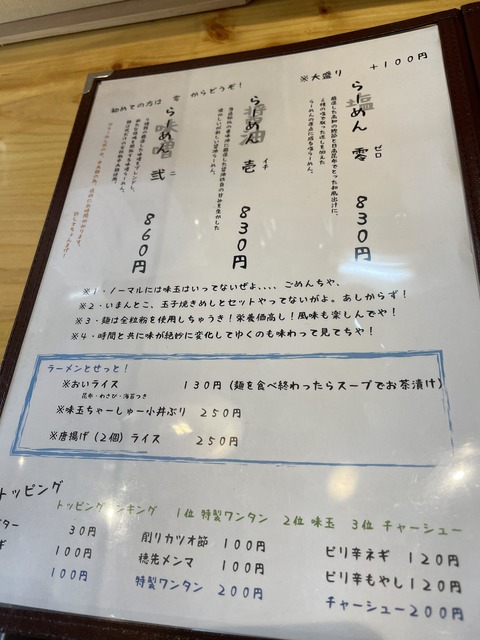 ※大盛り +100円
初めての方は 零 からどうぞ!
らーめん 零 ゼロ 830円
塩
らーめん 壱 イチ 830円
醤油
らーめん 弐 ニ 860円
味噌
※1・ノーマルには味玉はいってないぜよ、、、、ごめんちゃ。
※2・いまんとこ、玉子焼きめしとセットやってないがよ。あしからず!
※3・麺は全粒粉を使用しちゅうき!栄養価高し!風味も楽しんでや!
※4・時間と共に味が絶妙に変化してゆくのも味わって見てちや!
ラーメンとせっと!
※おいライス 130円(麺を食べ終わったらスープでお茶漬け)
昆布・わさび・海苔つき
※味玉ちゃーしゅー小丼ぶり 250円
※唐揚げ(2個)ライス 250円
トッピング
トッピングランキング 1位 特製ワンタン 2位 味玉 3位 チャーシュー
ター 30円 削りカツオ節 100円 ピリ辛ネギ 120円
ギ 100円 穂先メンマ 100円 ピリ辛もやし 120円
100円 特製ワンタン 200円 チャーシュー 200円